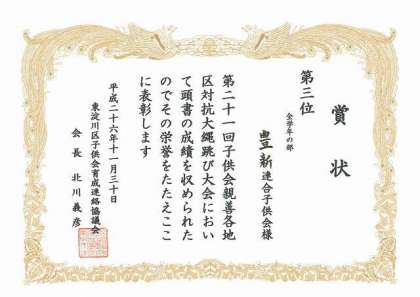 賞状
第三位
全学年の部
豊新連合子供会様
第二十一回子供会親善各地
区対抗大縄跳び大会におい
て頭書の成績を収められた
のでその栄誉をたたえここ
に表彰します
平成二十六年十一月三十日
東淀川区子供会育成連絡協議会
会長 北川義彦